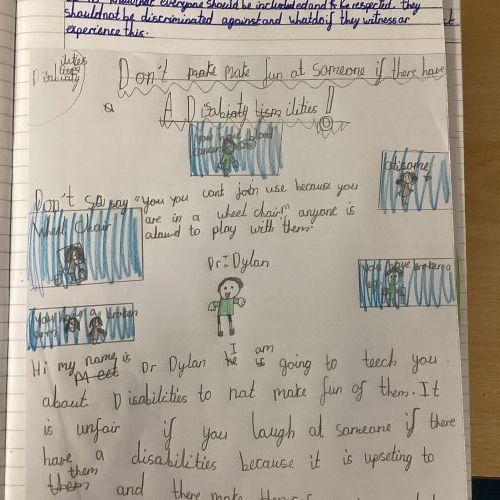 everyone should be included and to be respected. they
should not be discriminated against and what do if they witness or
experience this.
Disabiaty
ilities
Don't make make fun at someone if there have
A Disabiaty tism ilities!
you
Don't Sa say "you you cant join use because you
are in a wheel chair!" anyone is
alawd to play with them.
atisome
Wheel Chair
Dr I Dylan
you have broken a
you have a broken
arm
I am
Hi my name is Dr Dylan he is going to teech you
Meet
about Disabilities to not make fun of them. It
is unfair if you laugh at someone if there
have a disabilities because it is upseting to
them
them and there make